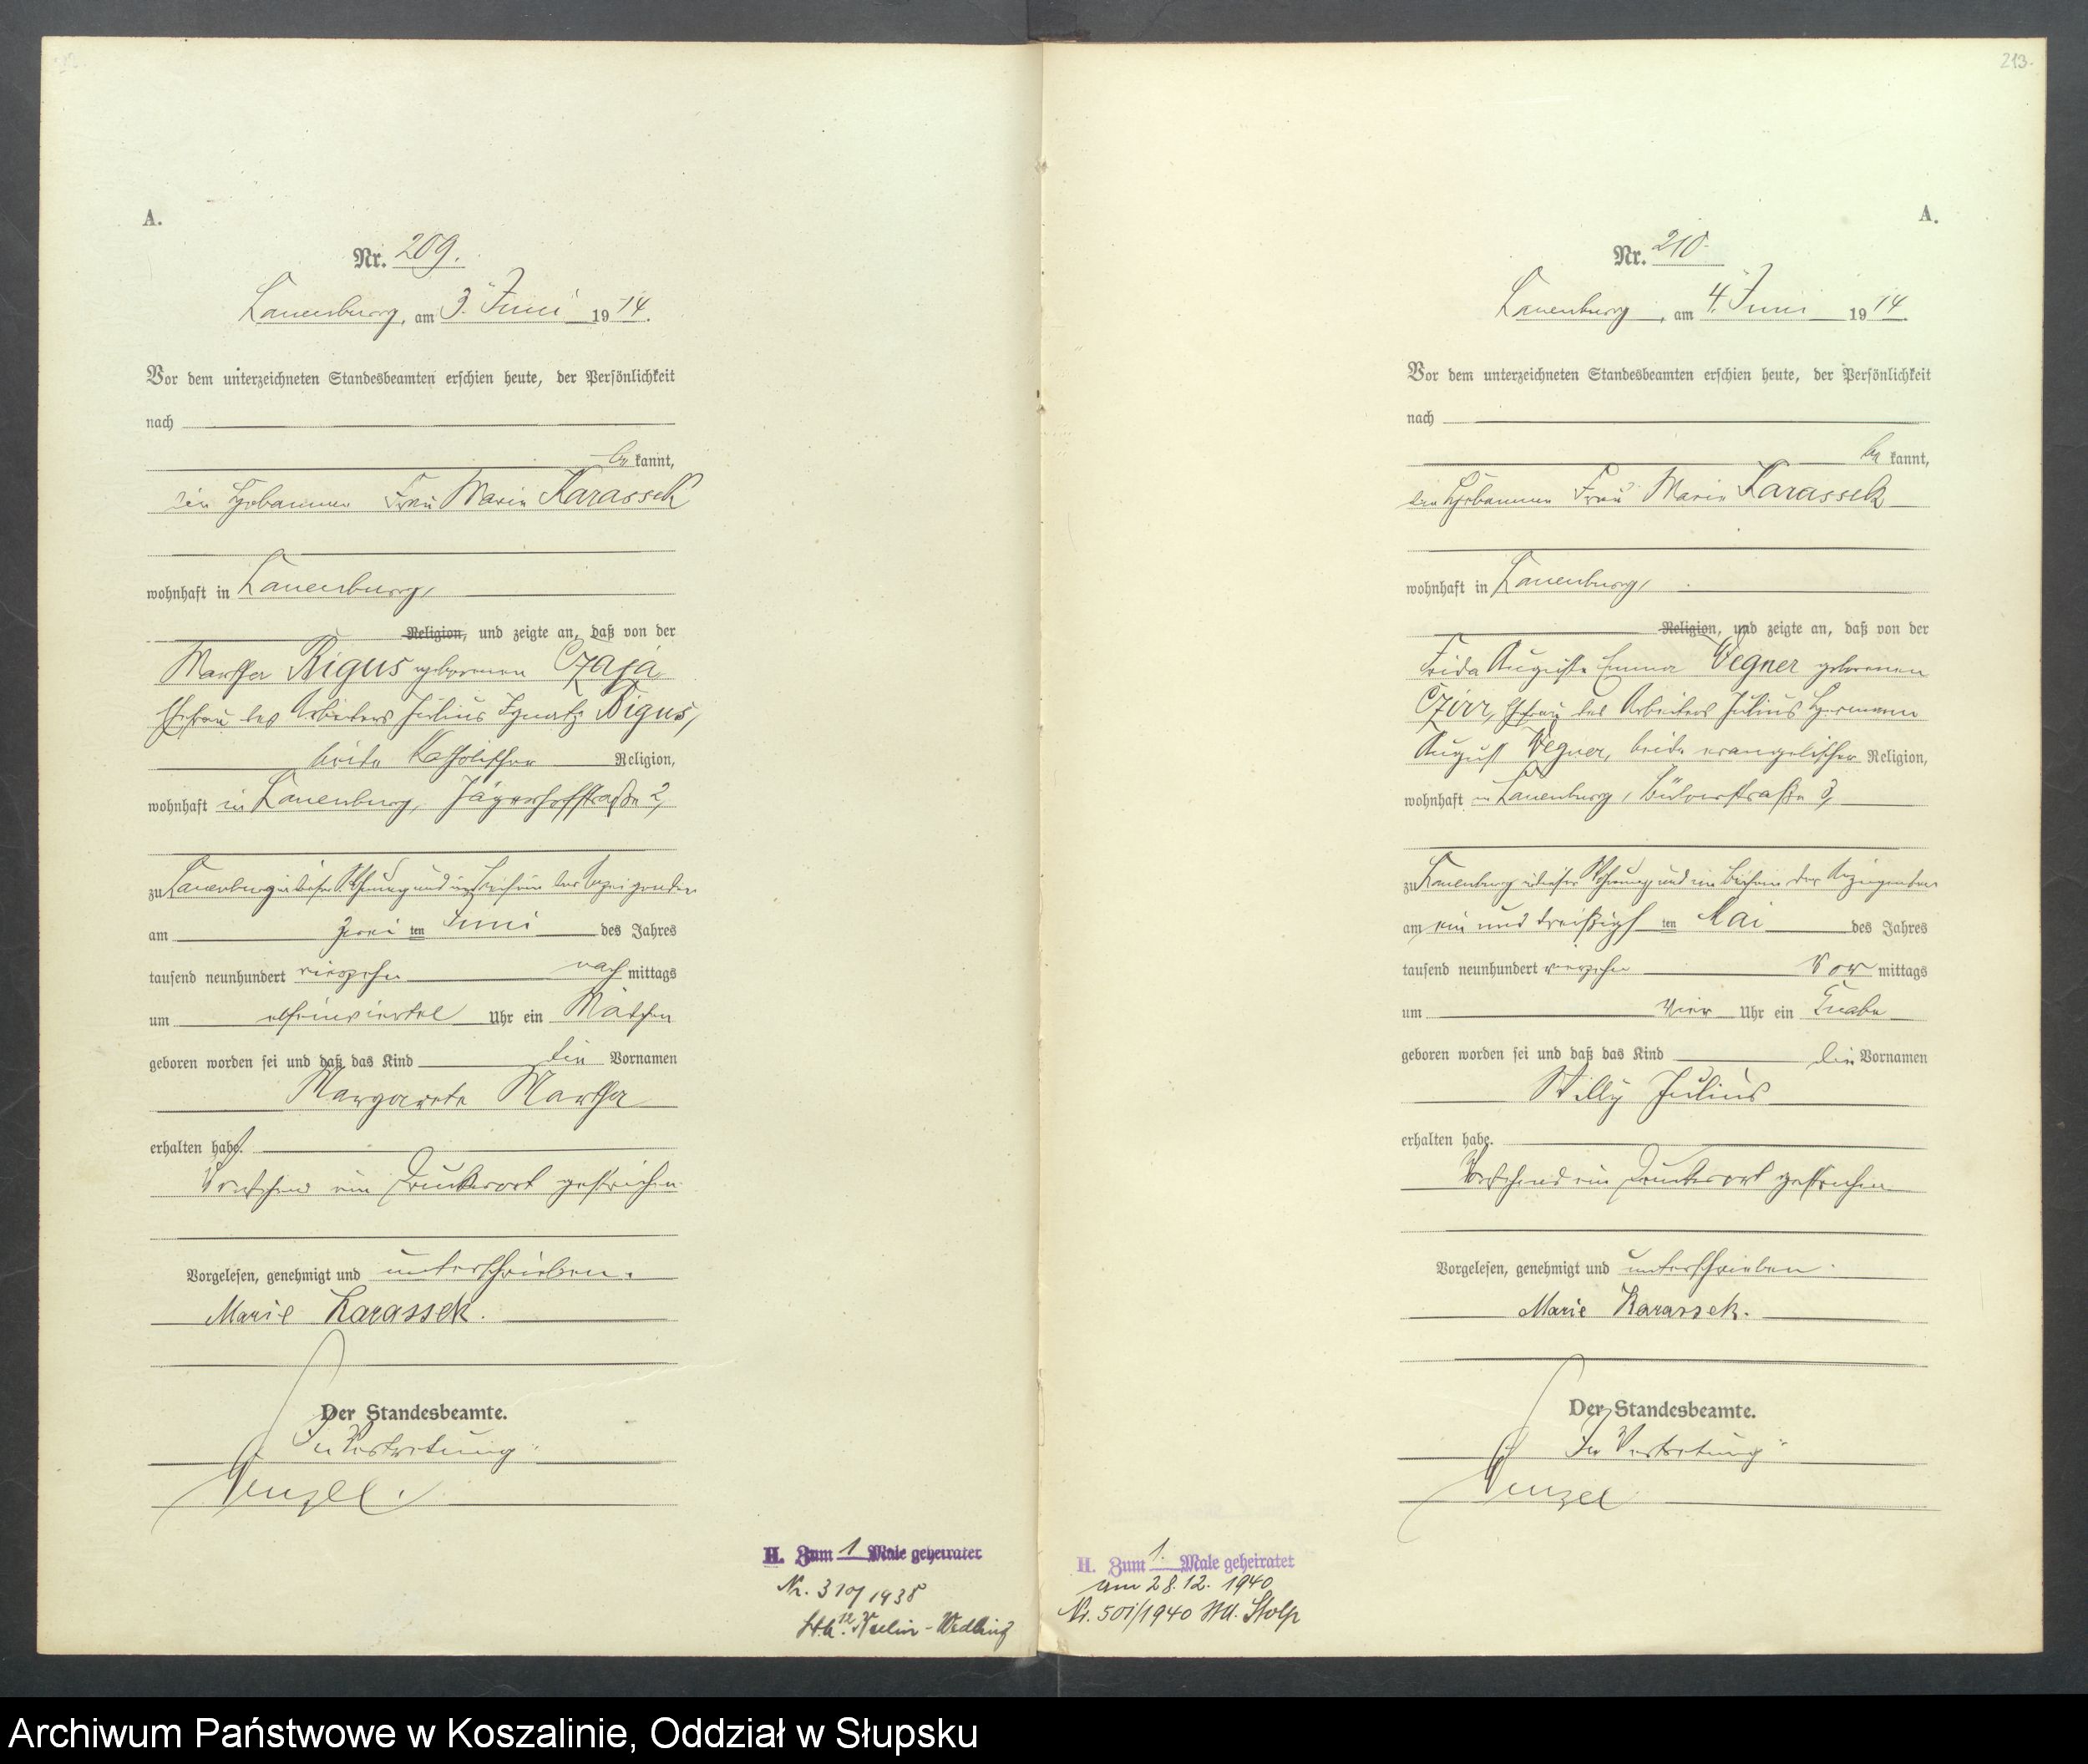 A.
Nr. 209.
Lauenburg, am 3. Juni 1914.
Vor dem unterzeichneten Standesbeamten erschien heute, der Persönlichkeit
nach
be kannt,
die Hebamme Frau Marie Karassek
wohnhaft in Lauenburg,
Religion, und zeigte an, daß von der
Martha Rigus geborenen Czaja
Ehefrau des Arbeiters Julius Ignatz Rigus,
beide katholischer Religion,
wohnhaft in Lauenburg, Jägerhofstraße 2,
zu Lauenburg in dieser Wohnung und im Beisein der Anzeigenden
am zwei ten Juni des Jahres
tausend neunhundert vierzehn nach mittags
um elfeinviertel Uhr ein Mädchen
geboren worden sei und daß das Kind die Vornamen
Margarete Martha
erhalten habe.
Vorstehend ein Druckwort gestrichen
Vorgelesen, genehmigt und unterschrieben.
Marie Karassek.
Der Standesbeamte.
In Vertretung:
Wenzel.
H. Zum 1 Male geheiratet
Nr. 310/1938
Berlin-Wedding
213.
A.
Nr. 210.
Lauenburg, am 4. Juni 1914.
Vor dem unterzeichneten Standesbeamten erschien heute, der Persönlichkeit
nach
be kannt,
die Hebamme Frau Marie Karassek
wohnhaft in Lauenburg,
Religion, und zeigte an, daß von der
Frida Auguste Emma Wegner geborenen
Czirr, Ehefrau des Arbeiters Julius Hermann
August Wegner, beide evangelischer Religion,
wohnhaft in Lauenburg, Bülowstraße 3,
zu Lauenburg in dieser Wohnung und im Beisein der Anzeigenden
am ein und dreißigsten Mai des Jahres
tausend neunhundert vierzehn Vor mittags
um vier Uhr ein Knabe
geboren worden sei und daß das Kind die Vornamen
Willy Julius
erhalten habe.
Vorstehend ein Druckwort gestrichen
Vorgelesen, genehmigt und unterschrieben.
Marie Karassek.
Der Standesbeamte.
In Vertretung:
Wenzel
H. Zum 1. Male geheiratet
am 28.12.1940
Nr. 501/1940 Stolp
Archiwum Państwowe w Koszalinie, Oddział w Słupsku